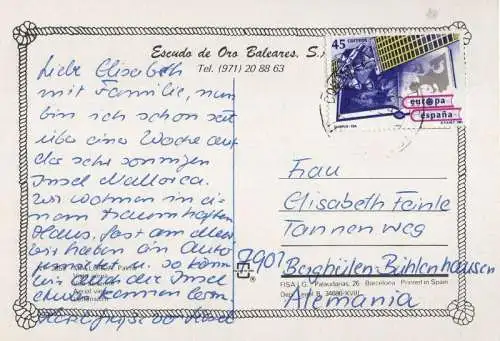 Escudo de Oro Baleares. S.
Tel. (971) 20 88 63
45 CORREOS
europa
españa
Liebe Elisabeth
mit Familie, nun
bin ich schon seit
über eine Woche auf
der sehr sonnigen
Insel Mallorca.
Wir wohnen in ei-
nem traumhaften
Haus, fast am Meer
wir haben ein Auto
so kön
wir die Insel
kennen lern
Insel
Aerial view
Frau
Elisabeth Feinle
Tannenweg
7901 Berghülen-Bühlenhausen
Alemania
FISA I.G. - Palaudarias, 26 - Barcelona Printed in Spain
B. 34086-XVIII